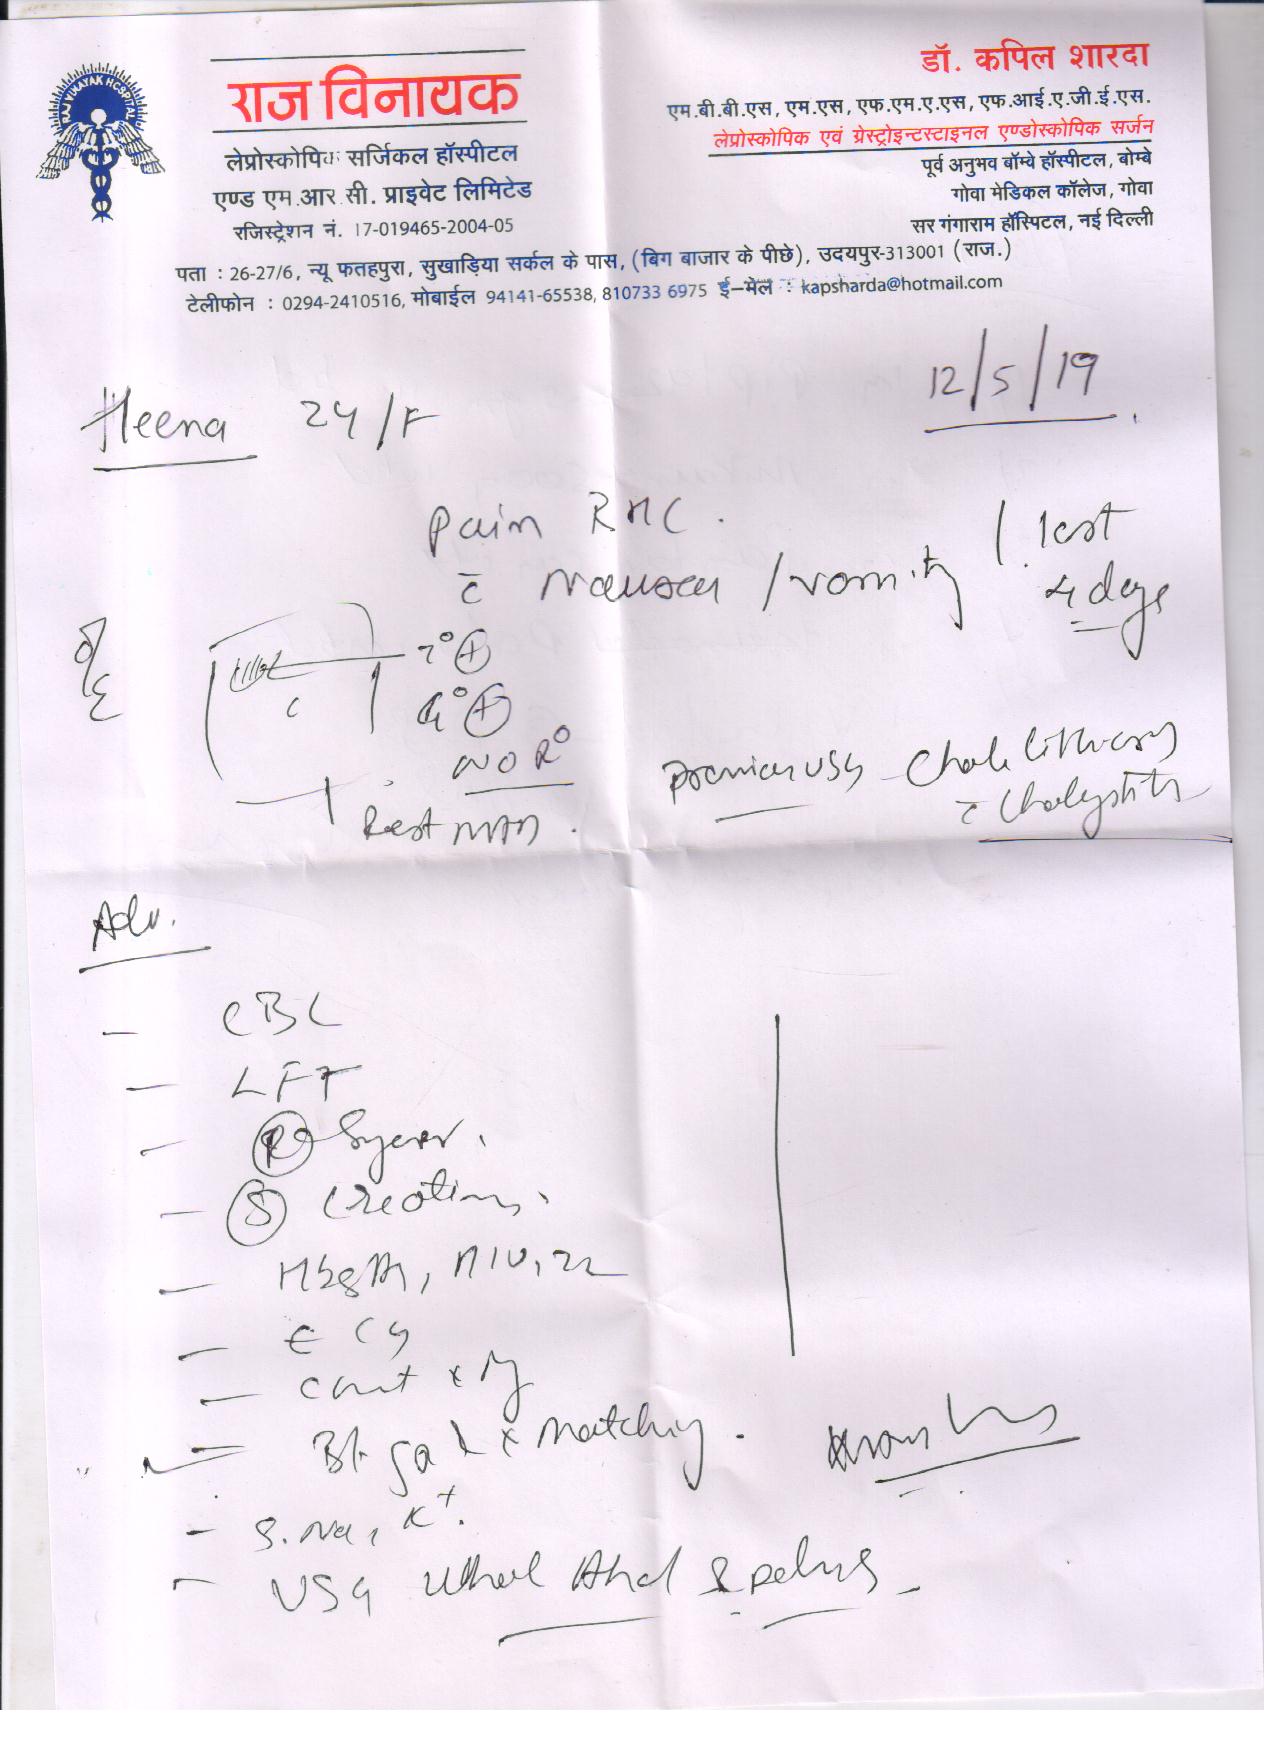 RAJ VINAYAK HOSPITAL
राज विनायक
लेप्रोस्कोपिक सर्जिकल हॉस्पीटल
एण्ड एम.आर.सी. प्राइवेट लिमिटेड
रजिस्ट्रेशन नं. 17-019465-2004-05
डॉ. कपिल शारदा
एम.बी.बी.एस, एम.एस, एफ.एम.ए.एस, एफ.आई.ए.जी.ई.एस.
लेप्रोस्कोपिक एवं ग्रेस्ट्रोइन्टस्टाइनल एण्डोस्कोपिक सर्जन
पूर्व अनुभव बॉम्बे हॉस्पीटल, बोम्बे
गोवा मेडिकल कॉलेज, गोवा
सर गंगाराम हॉस्पिटल, नई दिल्ली
पता : 26-27/6, न्यू फतहपुरा, सुखाड़िया सर्कल के पास, (बिग बाजार के पीछे), उदयपुर-313001 (राज.)
टेलीफोन : 0294-2410516, मोबाईल 94141-65538, 810733 6975 ई-मेल : kapsharda@hotmail.com
12/5/19
Heena 24/F
Pain RHC.
c̄ Nausea / vomiting / last
4 days
O/E
T° (+)
G° (+)
NO R°
Previous USG Cholelithiasis
c̄ Cholecystitis
Rest NAD.
Adv.
- CBC
- LFT
- (R) Sugar.
- (S) Creatinine.
- HbsAg, HIV,
- ECG
- Chest x Ry
- Bl. gp & x matching.
- S. Na, K+.
- USG Whole Abd & pelvis